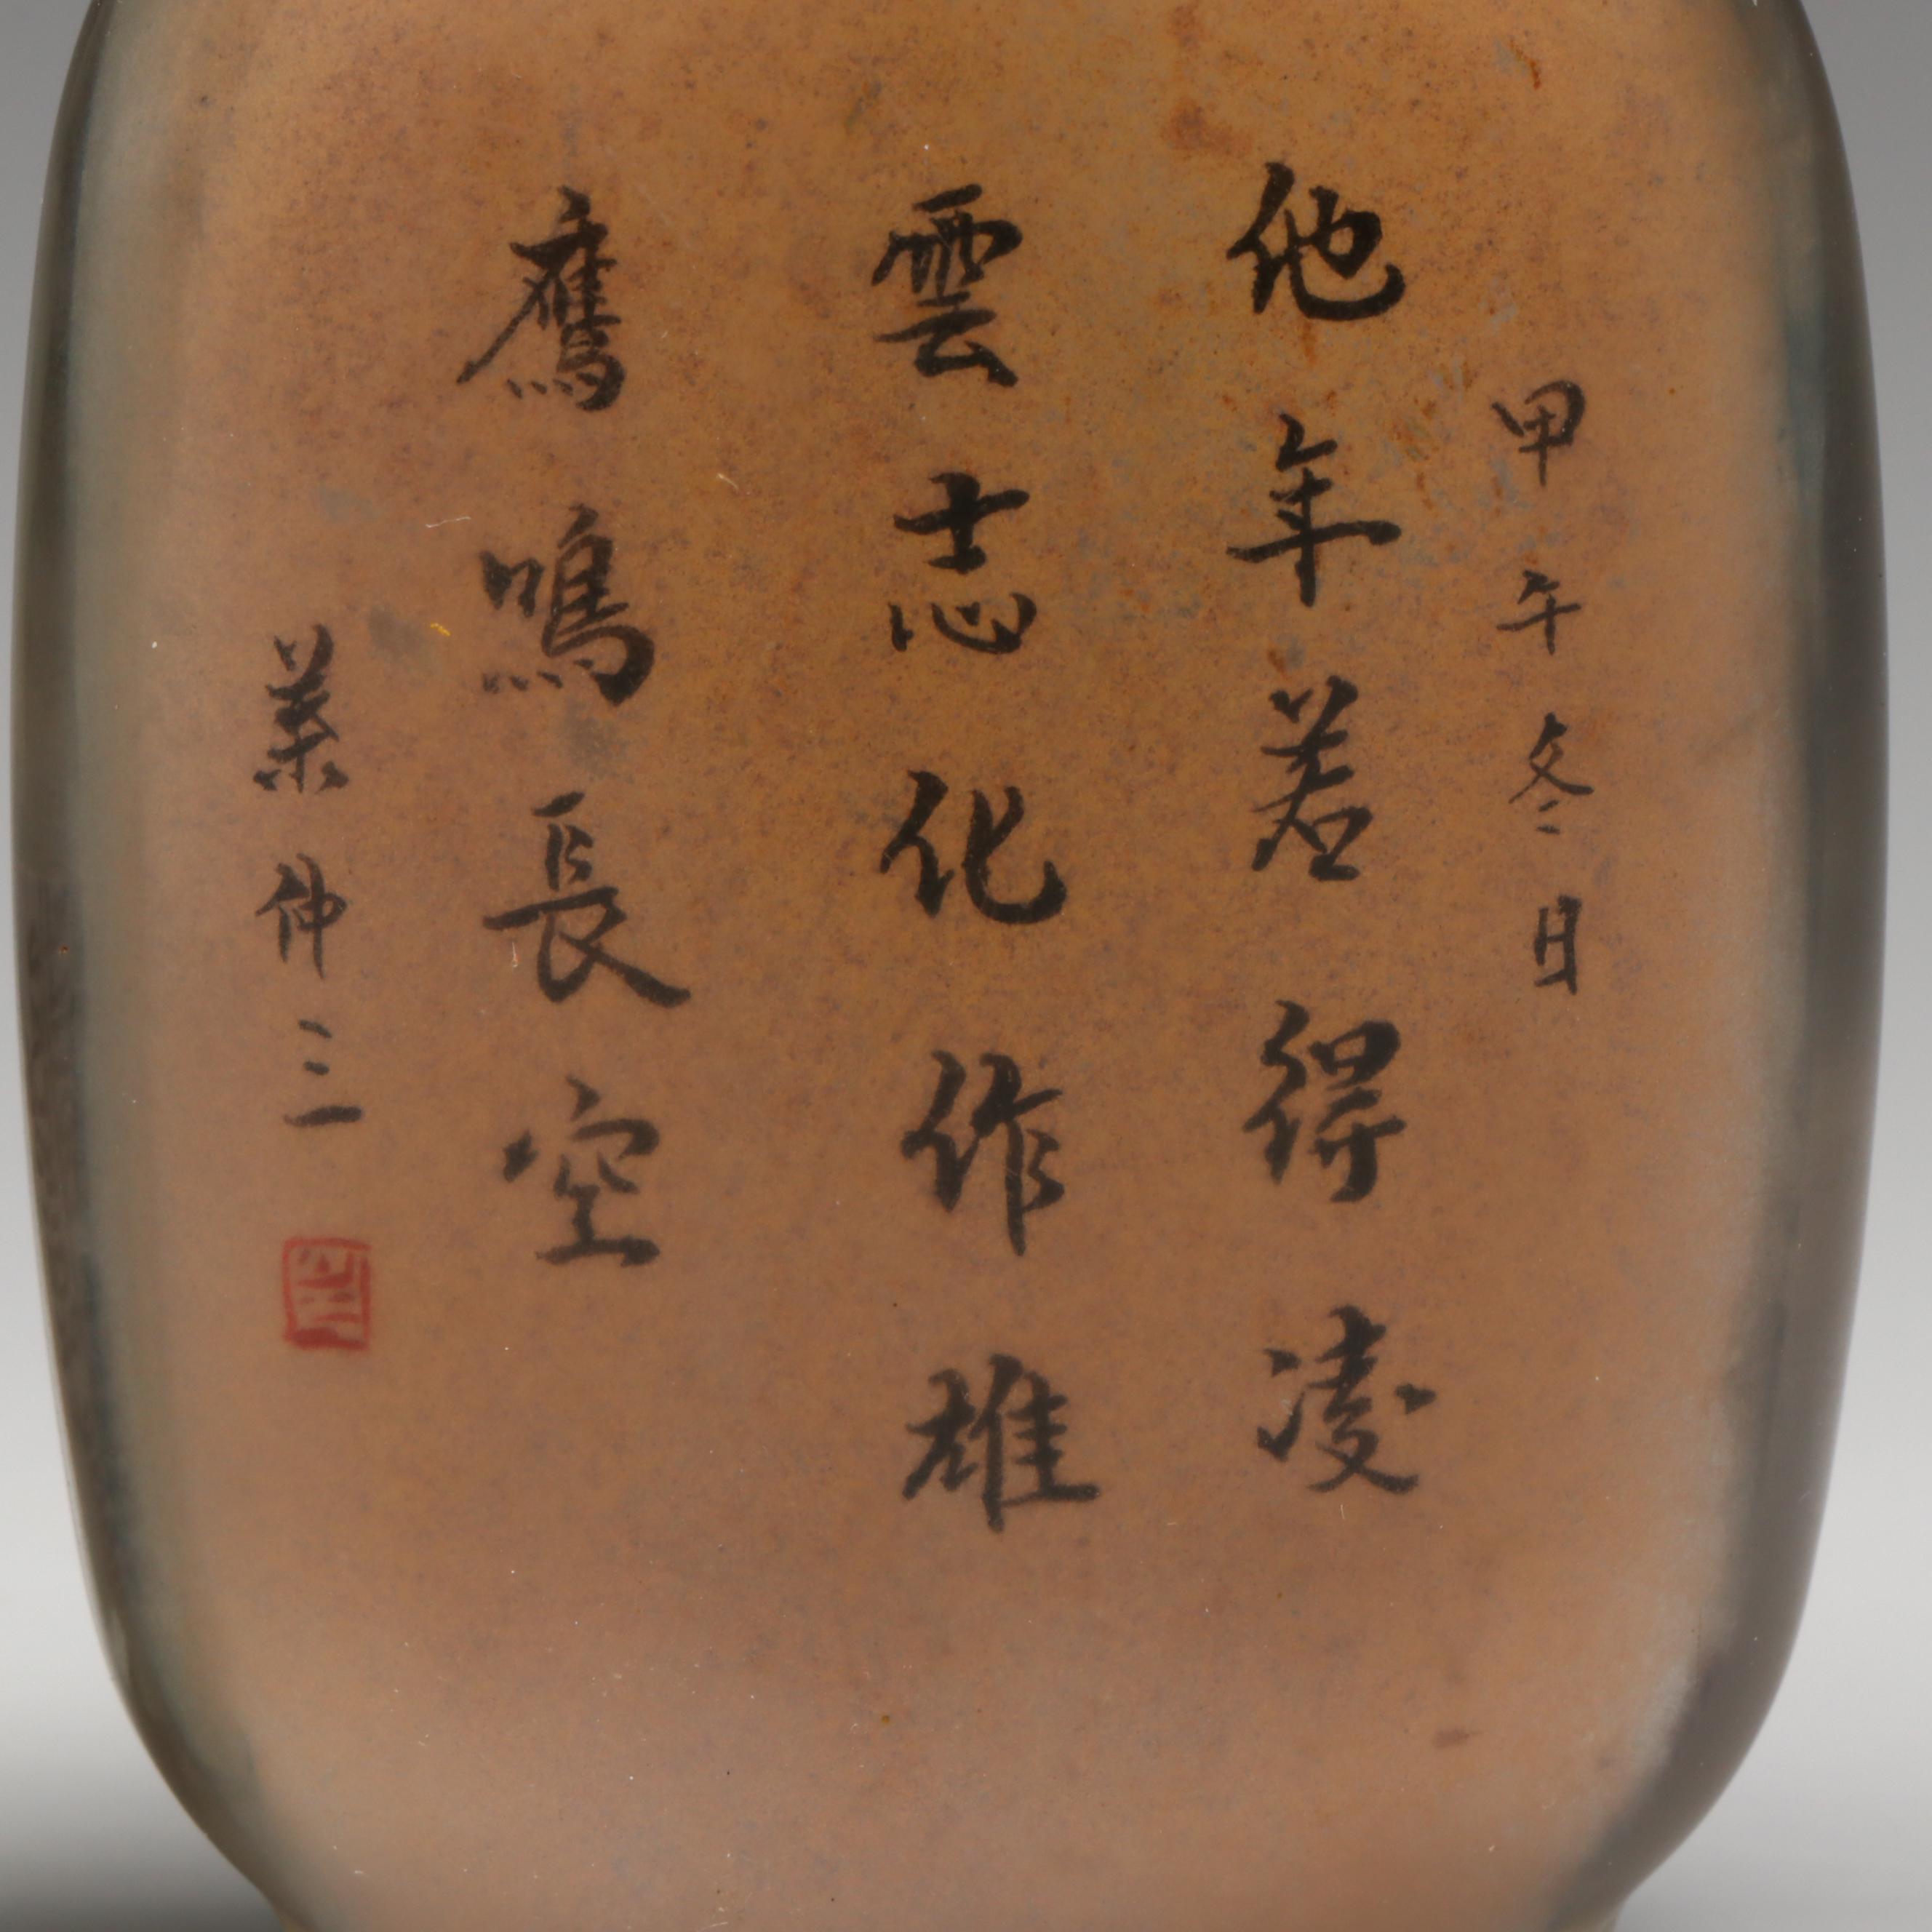 甲午冬日
他年若得凌
雲志化作雄
鷹鳴長空
葉仲三